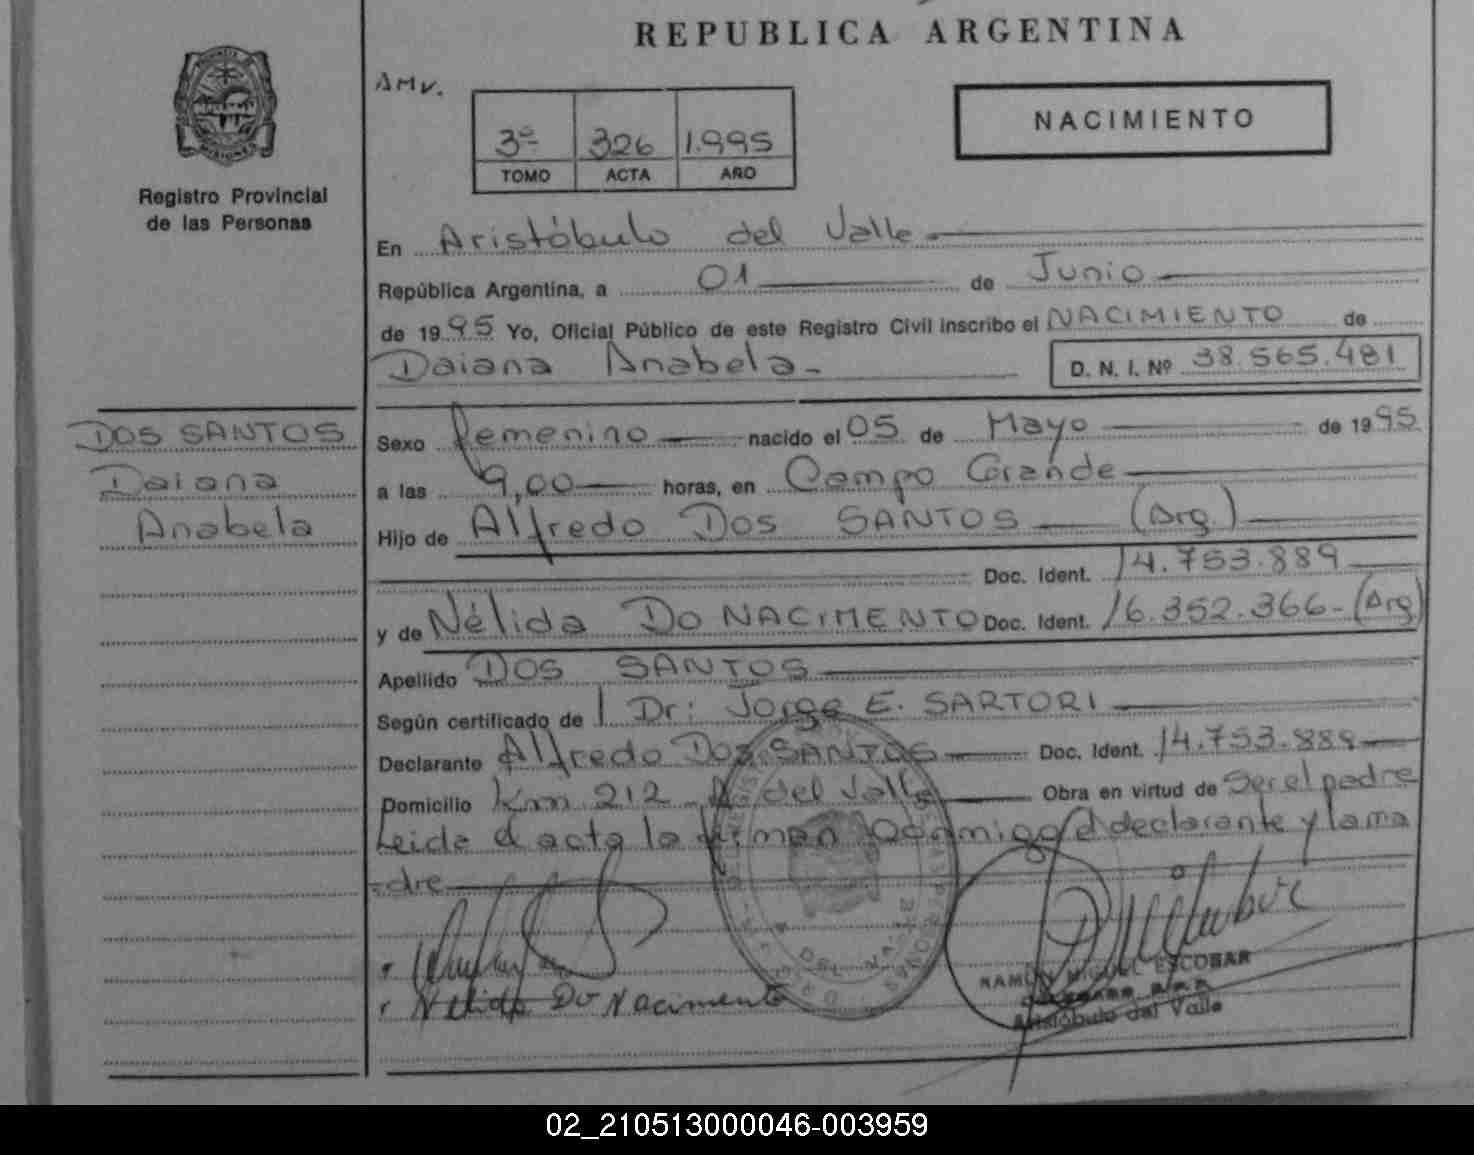 REPUBLICA ARGENTINA
AMV.
PROVINCIA DE
MISIONES
Registro Provincial
de las Personas
3º 326 1.995
TOMO ACTA AÑO
NACIMIENTO
En Aristóbulo del Valle.
República Argentina, a 01 de Junio
de 1995 Yo, Oficial Público de este Registro Civil inscribo el NACIMIENTO de
Daiana Anabela.- D. N. I. Nº 38.565.481
DOS SANTOS
Daiana
Anabela
Sexo femenino nacido el 05 de Mayo de 1995
a las 9,00 horas, en Campo Grande
Hijo de Alfredo Dos SANTOS (Arg.)
Doc. Ident. 14.753.889
y de Nélida Do NACIMENTO Doc. Ident. 16.352.366-(Arg)
Apellido DOS SANTOS
Según certificado de Dr: Jorge E. SARTORI
Declarante Alfredo Dos SANTOS Doc. Ident. 14.753.889
Domicilio Km 212 A del Valle Obra en virtud de Ser el padre
Leida el acta la firman conmigo el declarante y la ma
-dre
Nelida Do Nacimento
RAMON MIGUEL ESCOBAR
Aristóbulo del Valle
02_210513000046-003959